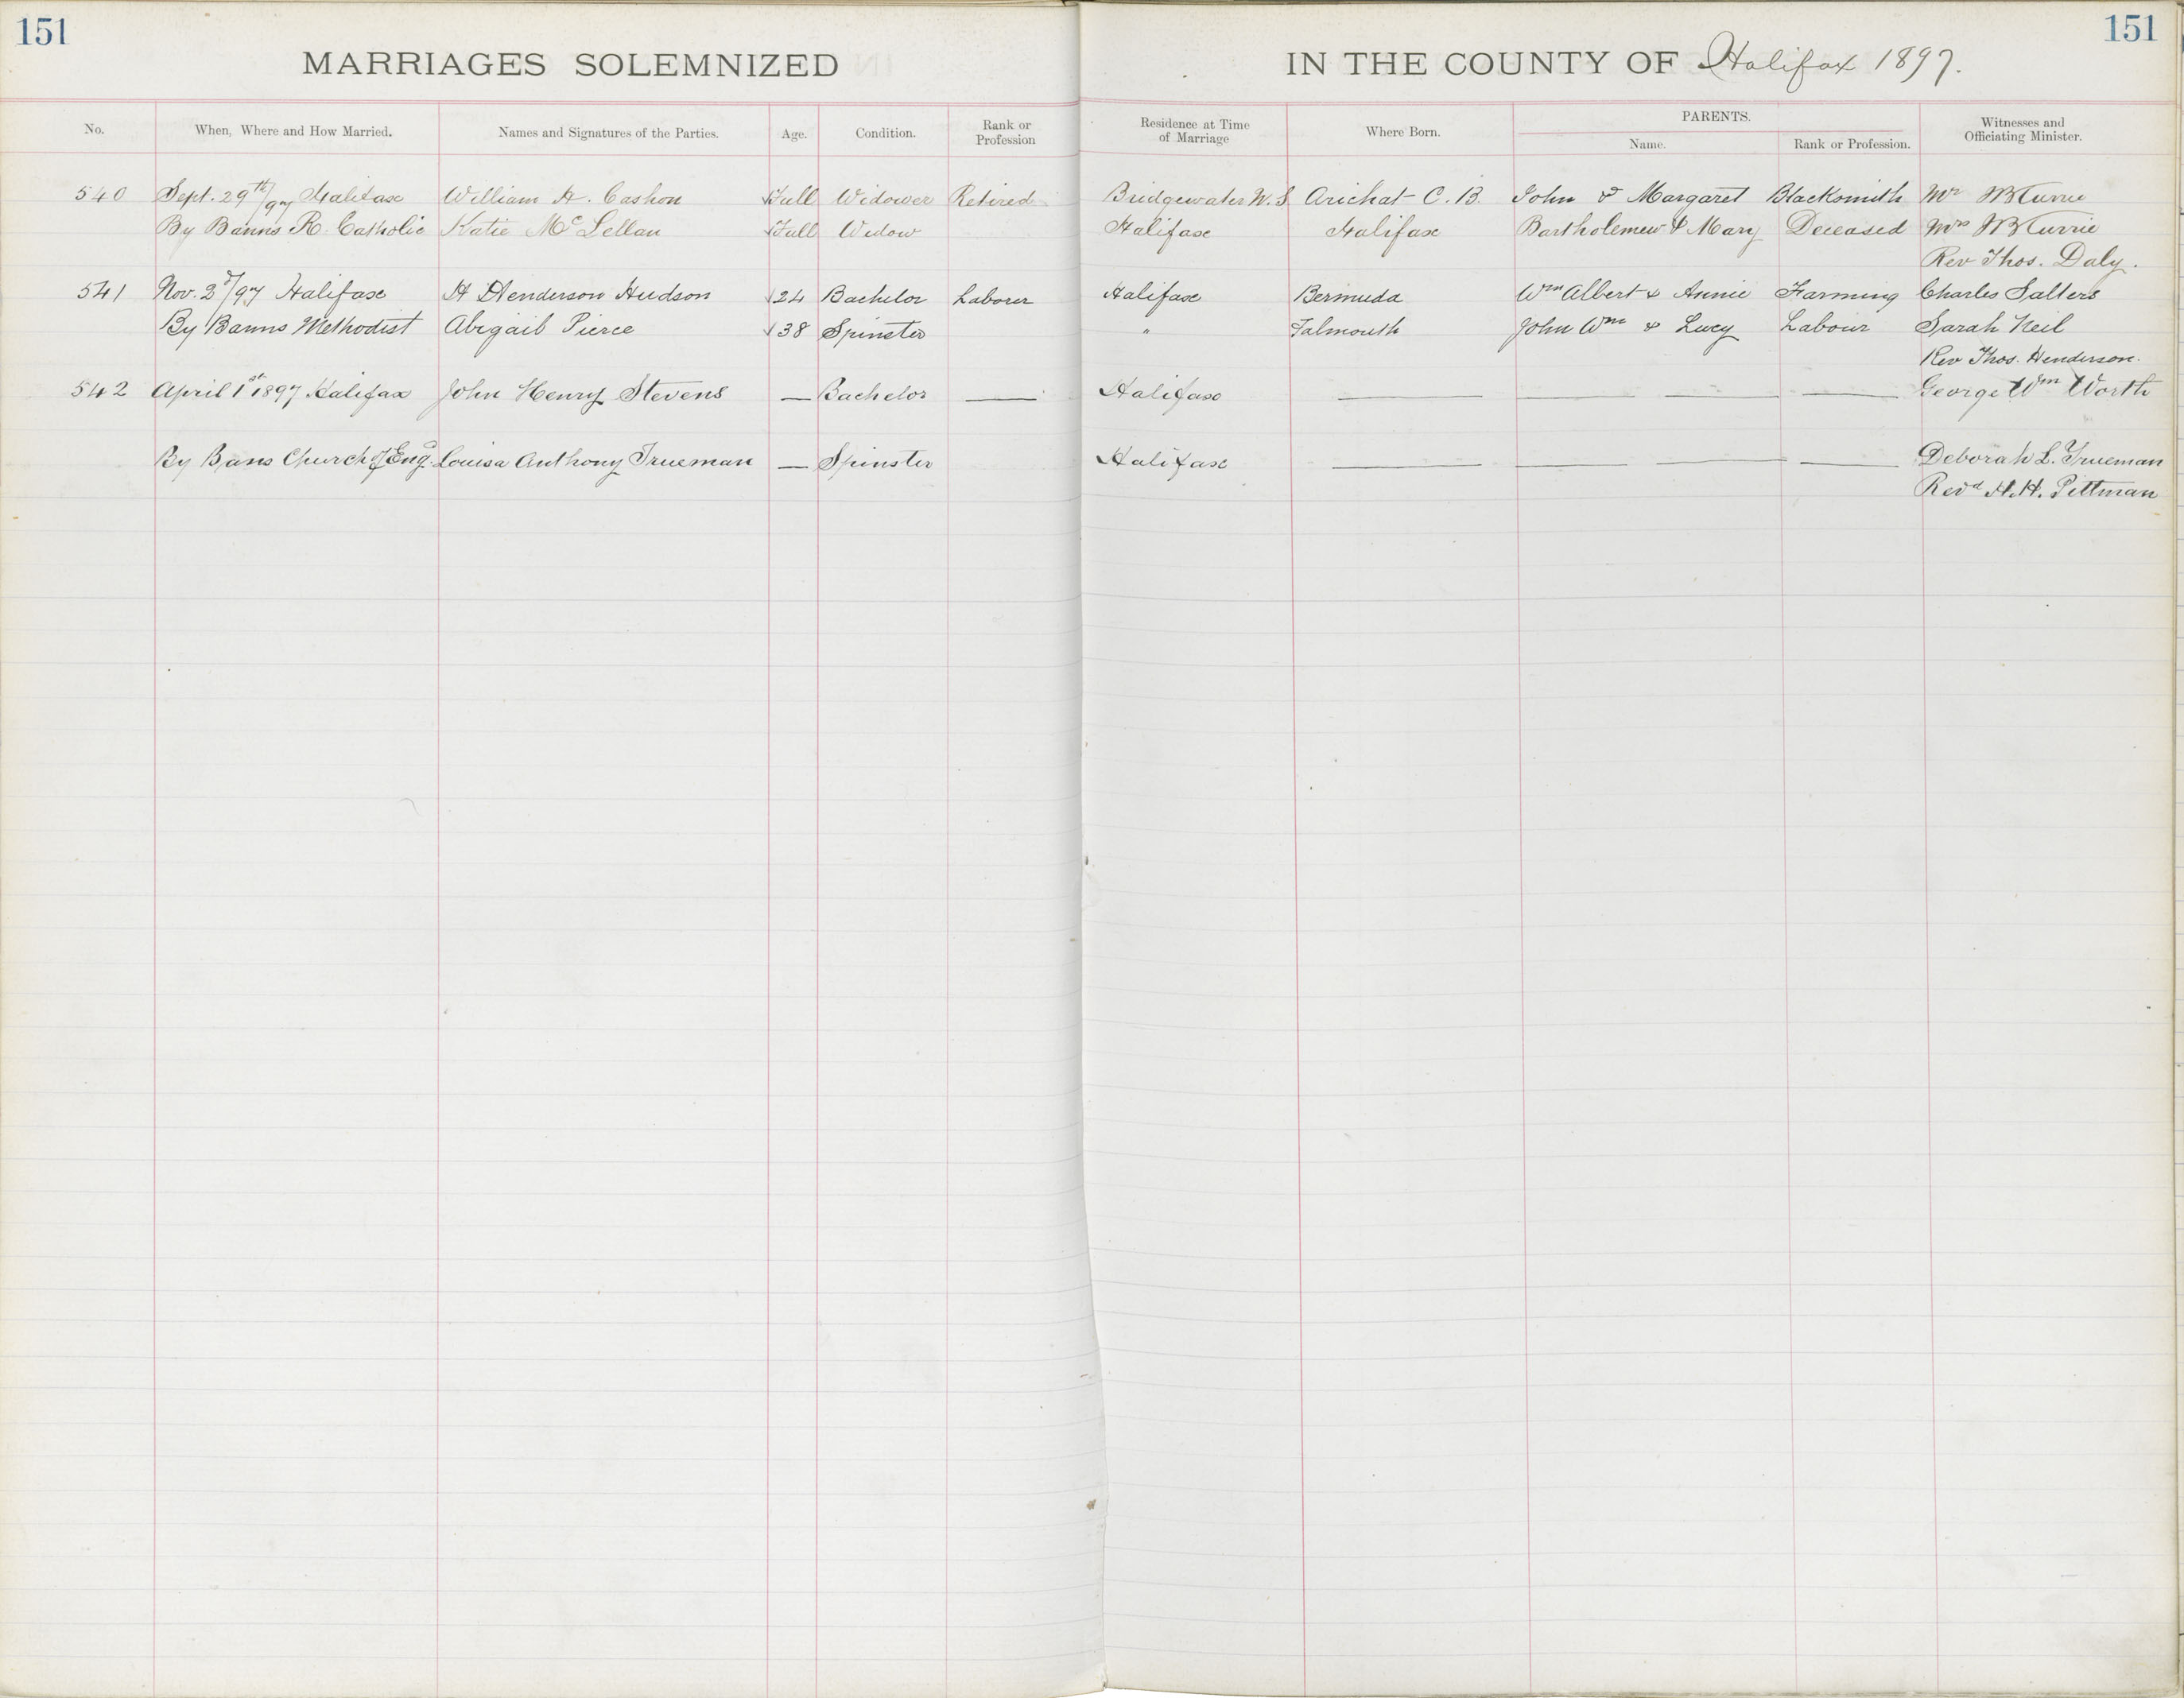 151
151
MARRIAGES SOLEMNIZED IN THE COUNTY OF Halifax 1897.
No. When, Where and How Married. Names and Signatures of the Parties. Age. Condition. Rank or Profession Residence at Time of Marriage Where Born. PARENTS. Name. Rank or Profession. Witnesses and Officiating Minister.
540 Sept. 29th/97 Halifax William H. Cashon Full Widower Retired Bridgewater N.S Arichat C.B. John & Margaret Blacksmith Mr Currie
By Banns R. Catholic Katie McLellan Full Widow Halifax Halifax Bartholemew & Mary Deceased Mrs Currie
Rev Thos. Daly.
541 Nov. 2d/97 Halifax H Henderson Hudson 24 Bachelor Laborer Halifax Bermuda Wm Albert & Annie Farming Charles Salters
By Banns Methodist Abigail Pierce 38 Spinster " Falmouth John Wm & Lucy Labour Sarah Neil
Rev Thos. Henderson.
542 April 1st 1897 Halifax John Henry Stevens — Bachelor — Halifax — — — — George Wm Worth
By Bans Church of Engd. Louisa Anthony Trueman — Spinster Halifax — — — — Deborah L. Trueman
Revd H.H. Pittman